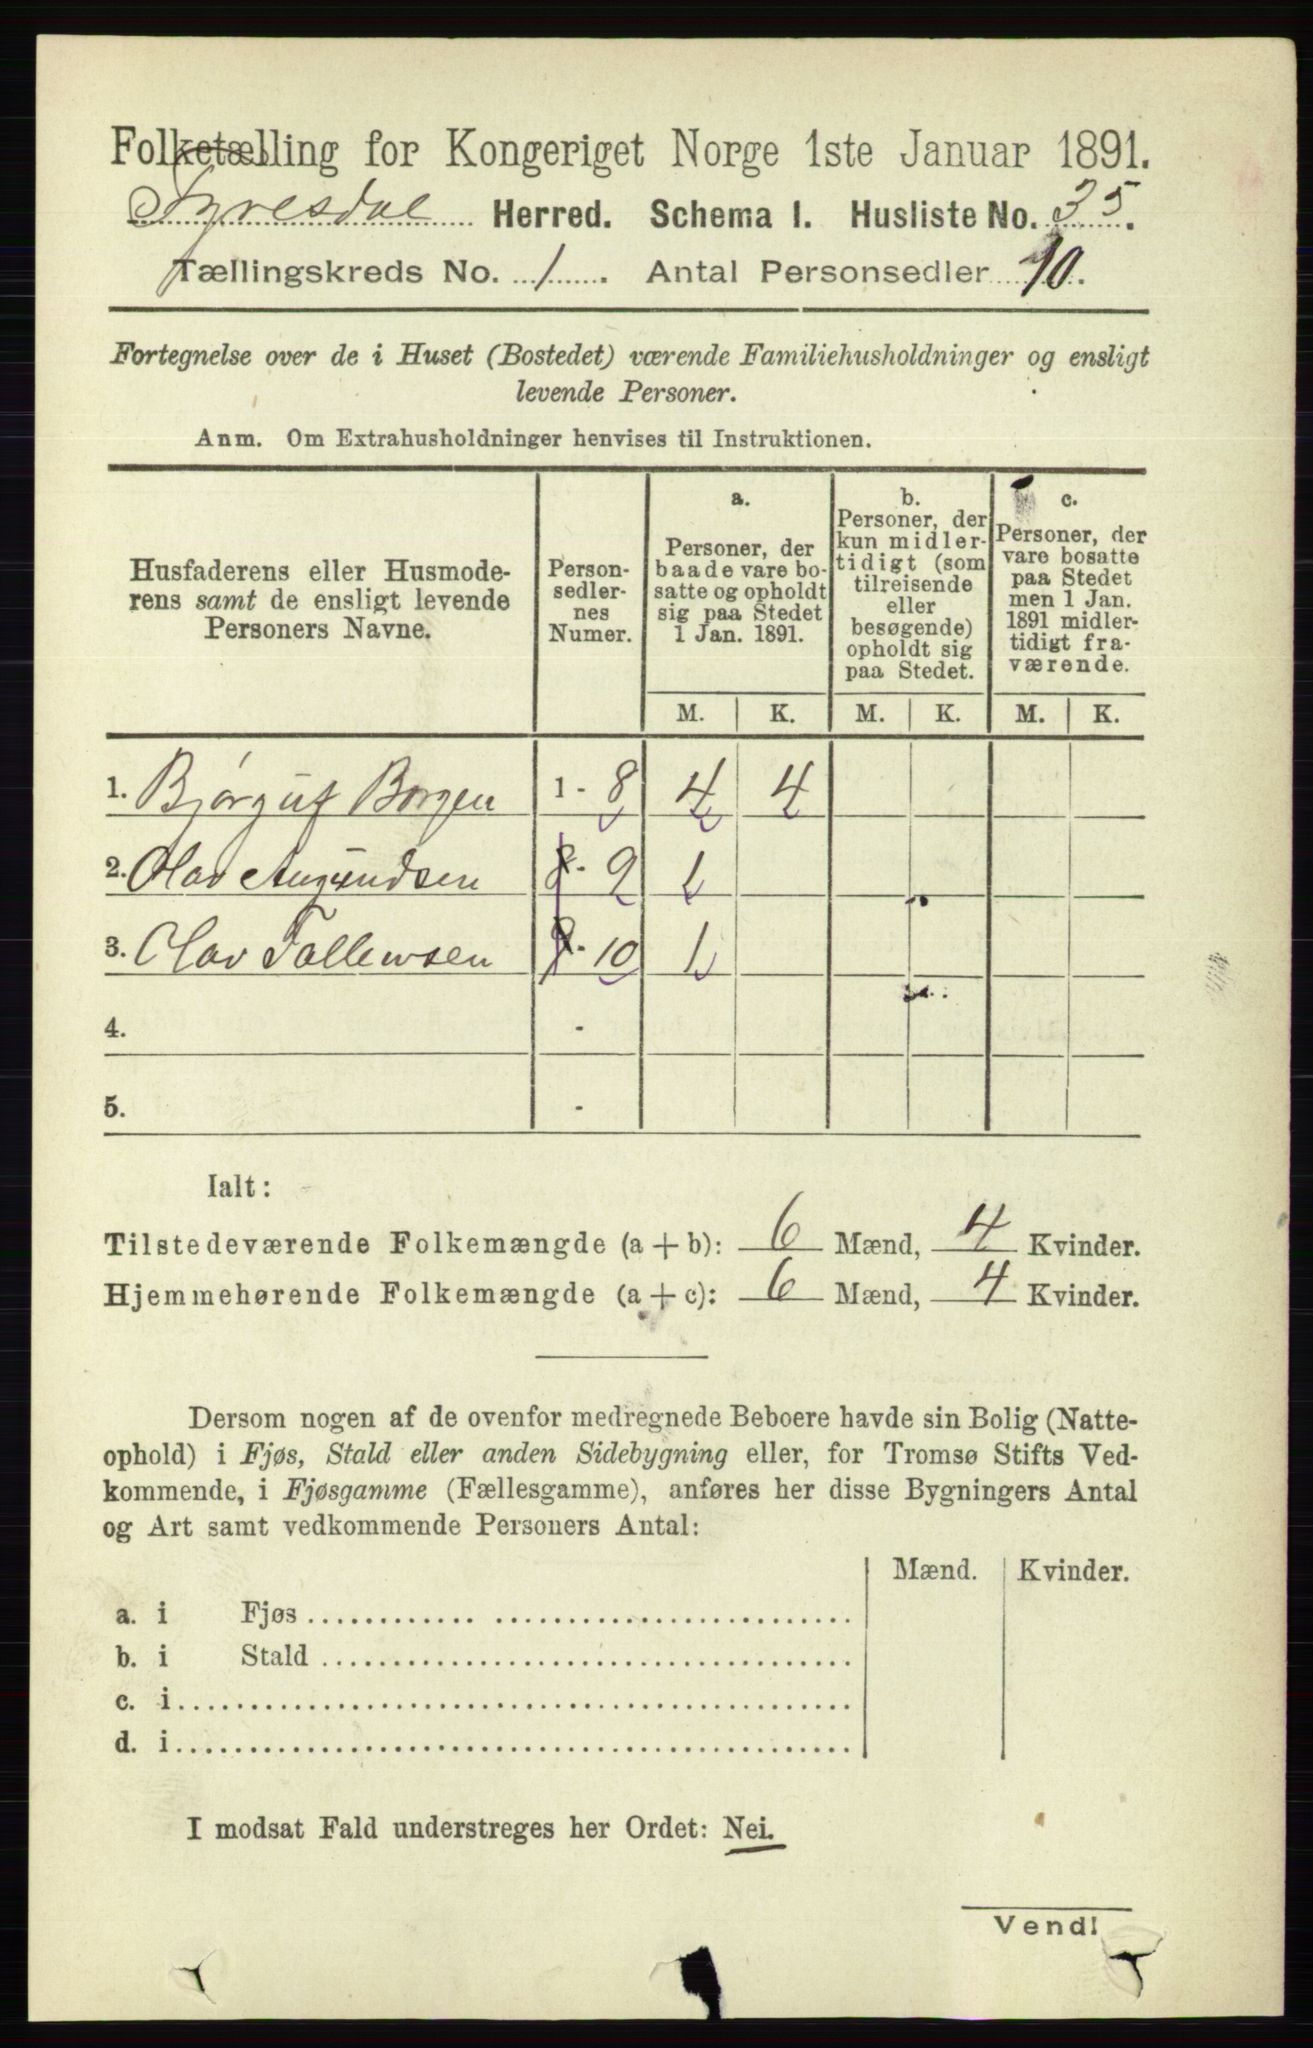 Folketælling for Kongeriget Norge 1ste Januar 1891.
Tyresdal Herred. Schema I. Husliste No. 35.
Tællingskreds No. 1. Antal Personsedler 10.
Fortegnelse over de i Huset (Bostedet) værende Familiehusholdninger og ensligt
levende Personer.
Anm. Om Extrahusholdninger henvises til Instruktionen.
Husfaderens eller Husmode-
rens samt de ensligt levende
Personers Navne.
Person-
sedler-
nes
Numer.
a.
Personer, der
baade vare bo-
satte og opholdt
sig paa Stedet
1 Jan. 1891.
b.
Personer, der
kun midler-
tidigt (som
tilreisende
eller
besøgende)
opholdt sig
paa Stedet.
c.
Personer, der
vare bosatte
paa Stedet
men 1 Jan.
1891 midler-
tidigt fra-
værende.
M. K. M. K. M. K.
1. Bjørguf Borgen 1 - 8 4 4
2. Olav Augundsen 8 - 9 1
3. Olav Tallevsen 8 - 10 1
4. -
5. -
Ialt:
Tilstedeværende Folkemængde (a + b): 6 Mænd, 4 Kvinder.
Hjemmehørende Folkemængde (a + c): 6 Mænd, 4 Kvinder.
Dersom nogen af de ovenfor medregnede Beboere havde sin Bolig (Natte-
ophold) i Fjøs, Stald eller anden Sidebygning eller, for Tromsø Stifts Ved-
kommende, i Fjøsgamme (Fællesgamme), anføres her disse Bygningers Antal
og Art samt vedkommende Personers Antal:
Mænd. Kvinder.
a. i Fjøs
b. i Stald
c. i
d. i
I modsat Fald understreges her Ordet: Nei.
Vend!